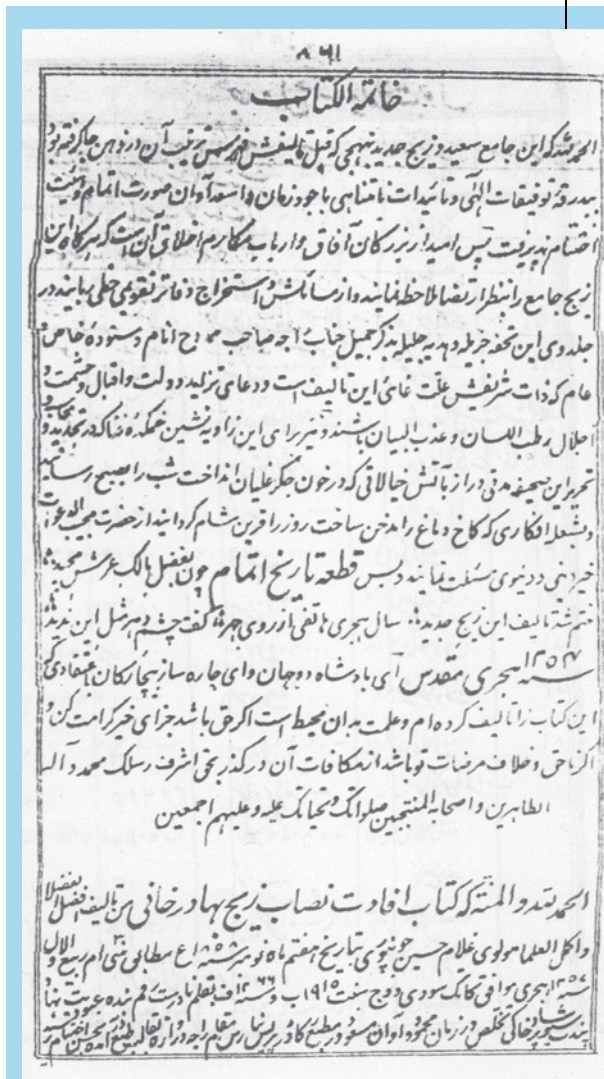 ۸۶۱
خاتمة الکتاب
الحمد لله که این جامع سعید و زیج جدید بنهجی که قبل تالیفش فهرس ترتیب آن در ذهن جا گرفته بود
ببدرقه توفیقات الهی و تائیدات نامتناهی باجود زمان و اسعد آوان صورت اتمام و هیئت
اختتام پذیرفت پس امید از بزرگان آفاق و ارباب مکارم اخلاق آن است که هرگاه این
زیج جامع را بنظر ارتضا ملاحظه نمایند و از مسائلش و استخراج دفاتر تقویمی حظی ربایند در
جلدوی این تحفه جزیله و هدیه جلیله بذکر جمیل جناب راجه صاحب ممدوح انام و ستوده خاص و
عام که ذات شریفش علت غائی این تالیف است و دعای تزاید دولت و اقبال و حشمت و
اجلال رطب اللسان و عذب البیان باشند و نیز برای این زاویه نشین غمکده غمناک که در تجدید و
تحریر این صحیفه مدتی دراز بآتش خیالاتی که در خون جگر غلیان انداخت شب را بصبح رسانید
و بشعله افکاری که کاخ دماغ را مدخن ساخت روز را قرین شام گردانید از حضرت مجیب الدعوات
خیر دینی و دنیوی مسئلت نمایند و بس قطعه تاریخ اتمام چون بفضل مالک عرش مجید
ختم شد تالیف این زیج جدید سال هجری هاتفی از روی جهر گفت چشم دهر مثل این ندید
سنه ۱۲۵۴ هجری مقدس آی بادشاه دو جهان و ای چاره ساز بیچارگان باعتقادی که
این کتاب را تالیف کرده ام و علمت بدان محیط است اگر حق باشد جزای خیر کرامت کن و
اگر ناحق و خلاف مرضات تو باشد از مکافات آن در گذر بحق اشرف رسلک محمد و آله
الطاهرین و اصحابه المنتجبین صلواتک و تحیاتک علیه و علیهم اجمعین
الحمد لله و المنة که کتاب افادت نصاب زیج بهادر خانی من تالیف افضل الفضلا
و اکمل العلما مولوی غلام حسین جونپوری بتاریخ هفتم ماه نومبر سنه ۱۸۵۸ع مطابق ام ربیع الاول
سنه هجری موافق کاتک سودی دوج سنت ۱۹۱۵ ب و سنه ۱۲۶۶ ف بقلم نادرست رقم بنده عبودیت
پندت خاکی تخلص در زمان محمود و آوان مسعود در مطبع بنارس مقام راجه دروازه بقالب طبع در آمده بحسن اختتام رسید